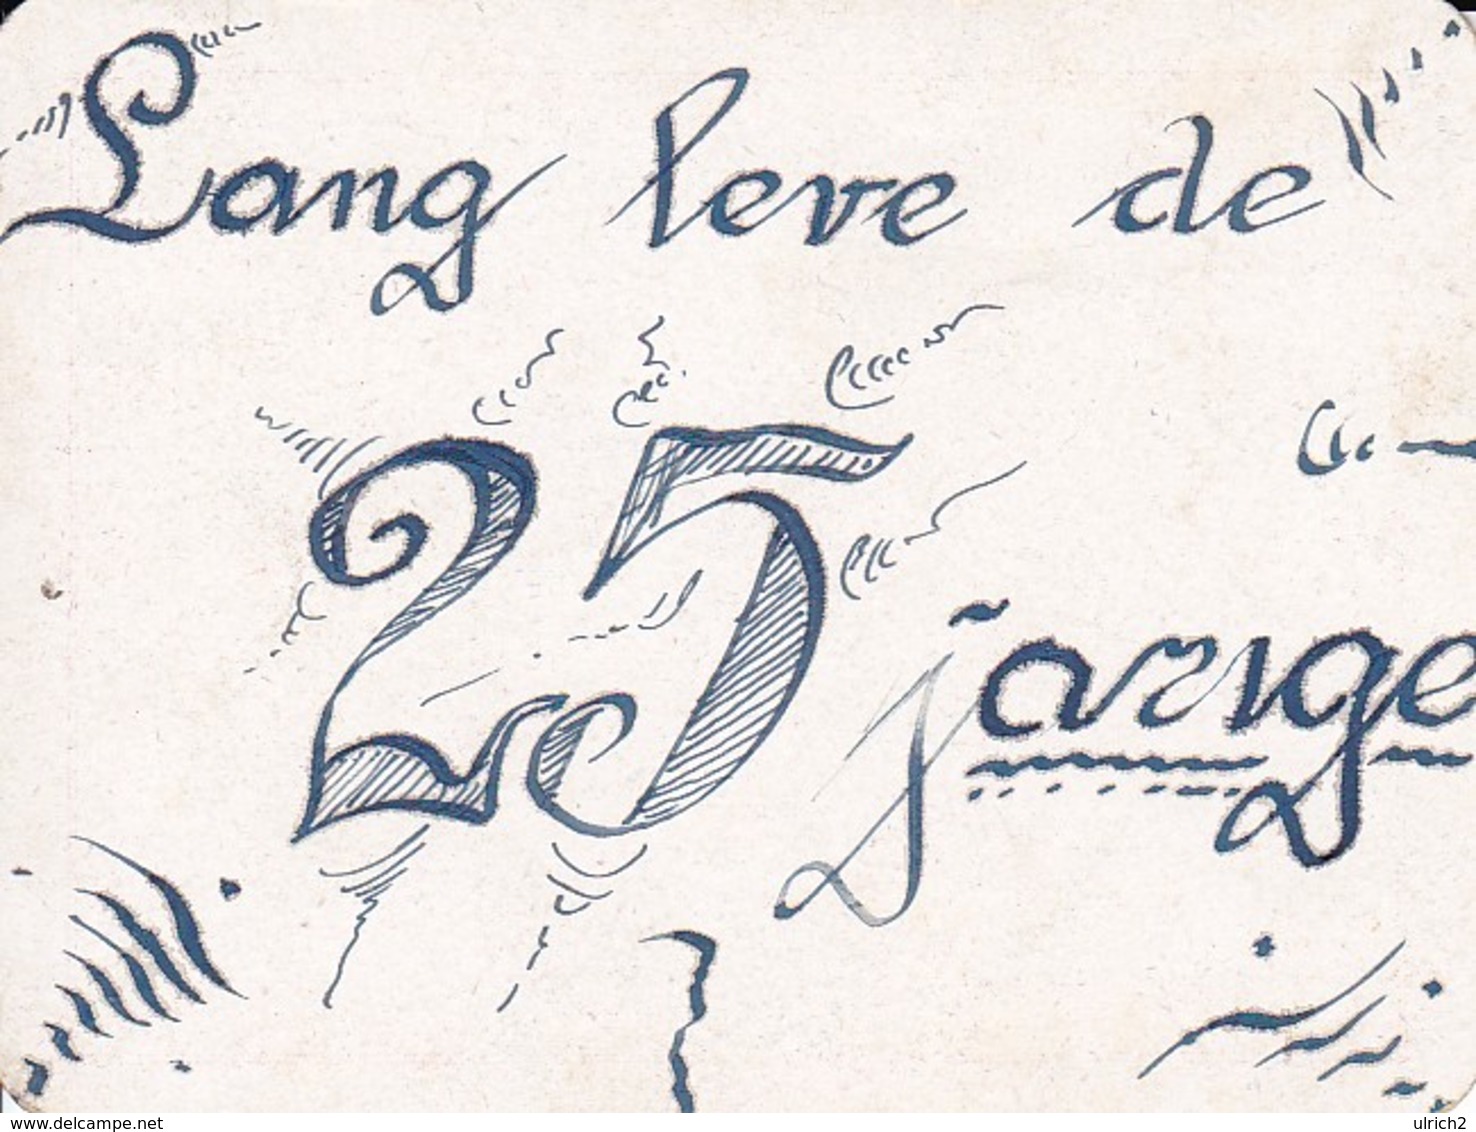 Lang leve de
25 jarige
www.delcampe.net
ulrich2